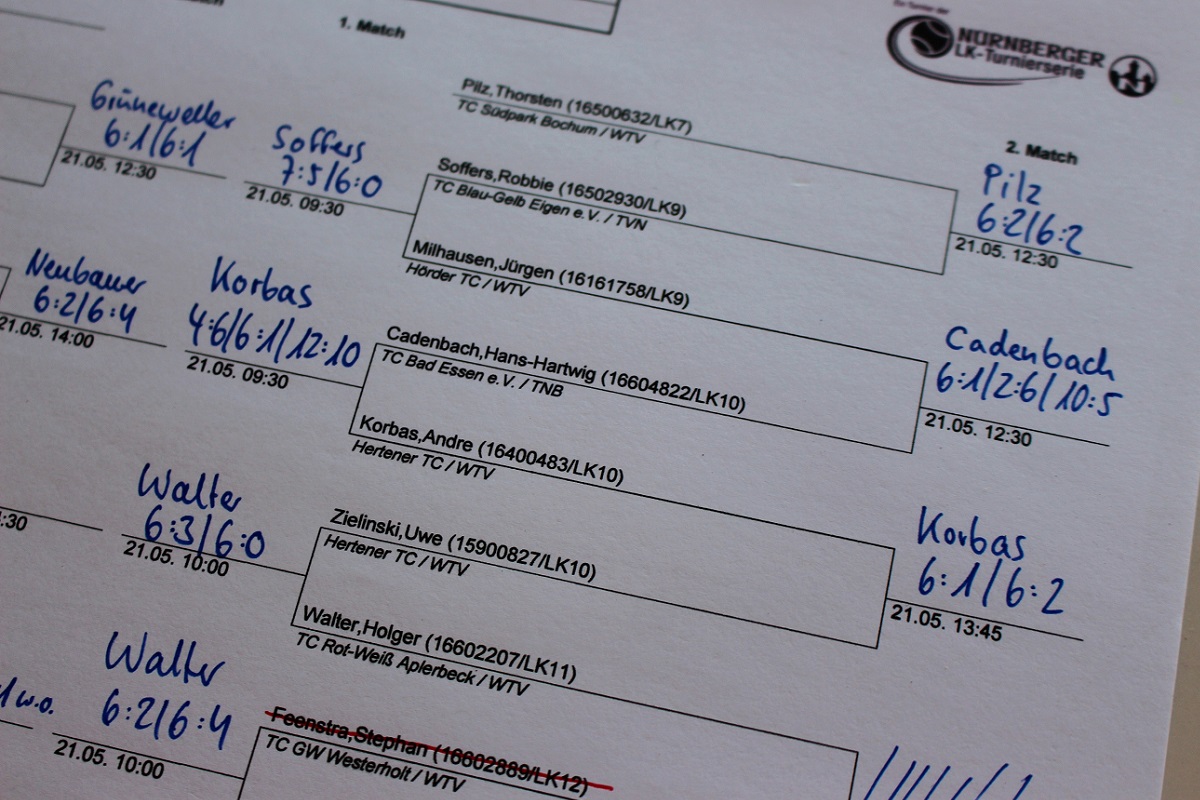 Ein Turnier der
NÜRNBERGER
LK-Turnierserie
1. Match
2. Match
Pilz,Thorsten (16500632/LK7)
TC Südpark Bochum / WTV
Grüneweller
6:1/6:1
21.05. 12:30
Soffers
7:5/6:0
21.05. 09:30
Soffers,Robbie (16502930/LK9)
TC Blau-Gelb Eigen e.V. / TVN
Pilz
6:2/6:2
21.05. 12:30
Milhausen,Jürgen (16161758/LK9)
Hörder TC / WTV
Neubauer
6:2/6:4
21.05. 14:00
Korbas
4:6/6:1/12:10
21.05. 09:30
Cadenbach,Hans-Hartwig (16604822/LK10)
TC Bad Essen e.V. / TNB
Cadenbach
6:1/2:6/10:5
21.05. 12:30
Korbas,Andre (16400483/LK10)
Hertener TC / WTV
:30
Walter
6:3/6:0
21.05. 10:00
Zielinski,Uwe (15900827/LK10)
Hertener TC / WTV
Korbas
6:1/6:2
21.05. 13:45
Walter,Holger (16602207/LK11)
TC Rot-Weiß Aplerbeck / WTV
w.o.
Walter
6:2/6:4
21.05. 10:00
Feenstra,Stephan (16602889/LK12)
TC GW Westerholt / WTV